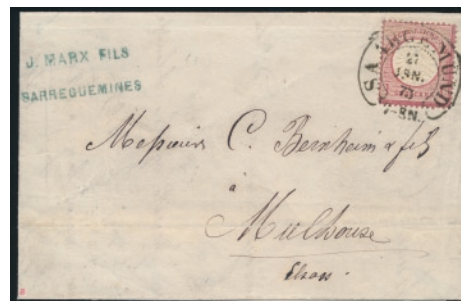 J. MARX FILS
SARREGUEMINES
SAARGEMÜND
27
JAN.
73
7-8N.
Messieurs C. Bernheim & fils
à
Mulhouse